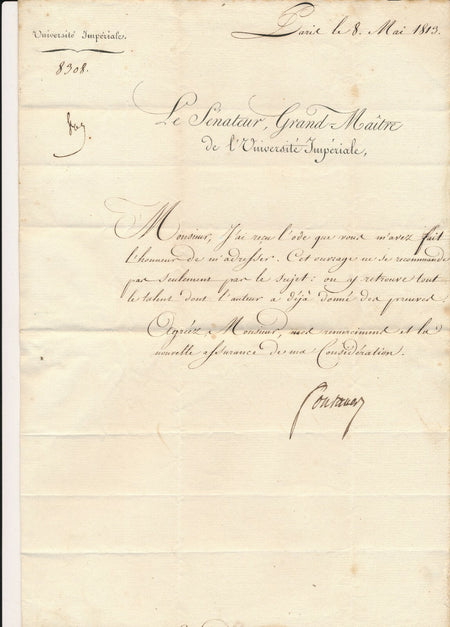 Université Impériale.
Paris le 8. Mai 1813.
8308.
Le Sénateur, Grand-Maître
de l'Université Impériale,
Monsieur, J'ai reçu l'ode que vous m'avez fait
l'honneur de m'adresser. Cet ouvrage ne se recommande
pas seulement par le sujet: on y retrouve tout
le talent dont l'auteur a déjà donné des preuves.
Agréez, Monsieur, mes remercîmens et la
nouvelle assurance de ma Considération.
Fontanes